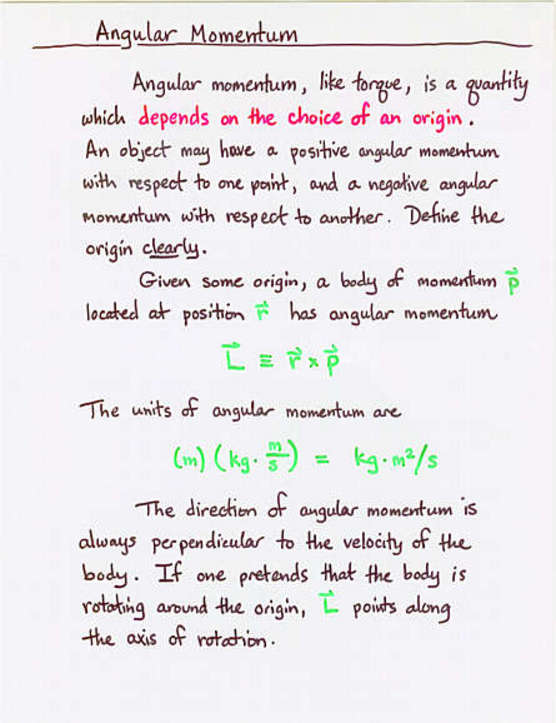 Angular Momentum
Angular momentum, like torque, is a quantity
which depends on the choice of an origin.
An object may have a positive angular momentum
with respect to one point, and a negative angular
momentum with respect to another. Define the
origin clearly.
Given some origin, a body of momentum p⃗
located at position r⃗ has angular momentum
L⃗ ≡ r⃗ × p⃗
The units of angular momentum are
(m) (kg · m/s) = kg · m²/s
The direction of angular momentum is
always perpendicular to the velocity of the
body. If one pretends that the body is
rotating around the origin, L⃗ points along
the axis of rotation.